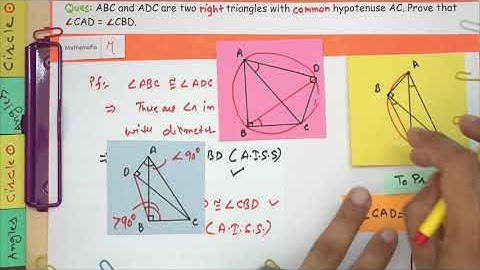 Ques: ABC and ADC are two right triangles with common hypotenuse AC. Prove that
∠CAD = ∠CBD.
Mathematia
Circle
Angles
Circle
Angles
Pf:- ∠ABC ≅ ∠ADC
⇒ These are ∠s in
with diameter
⇒ BD (A.I.S.S)
≅ ∠CBD
(A.I.S.S.)
A
D
B
C
A
B
A
<90°
D
>90°
B
C
To Pr
∠CAD=